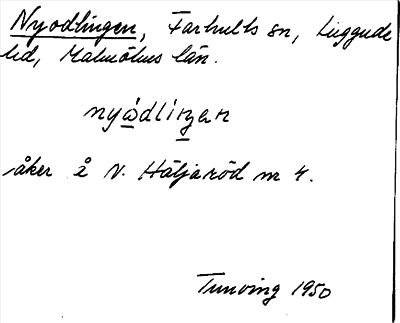 Nyodlingen, Farhults sn, Luggude
hd, Malmöhus län.
nyọ̀dlıṉgən
åker å N. Häljaröd nr 4.
Tunving 1950